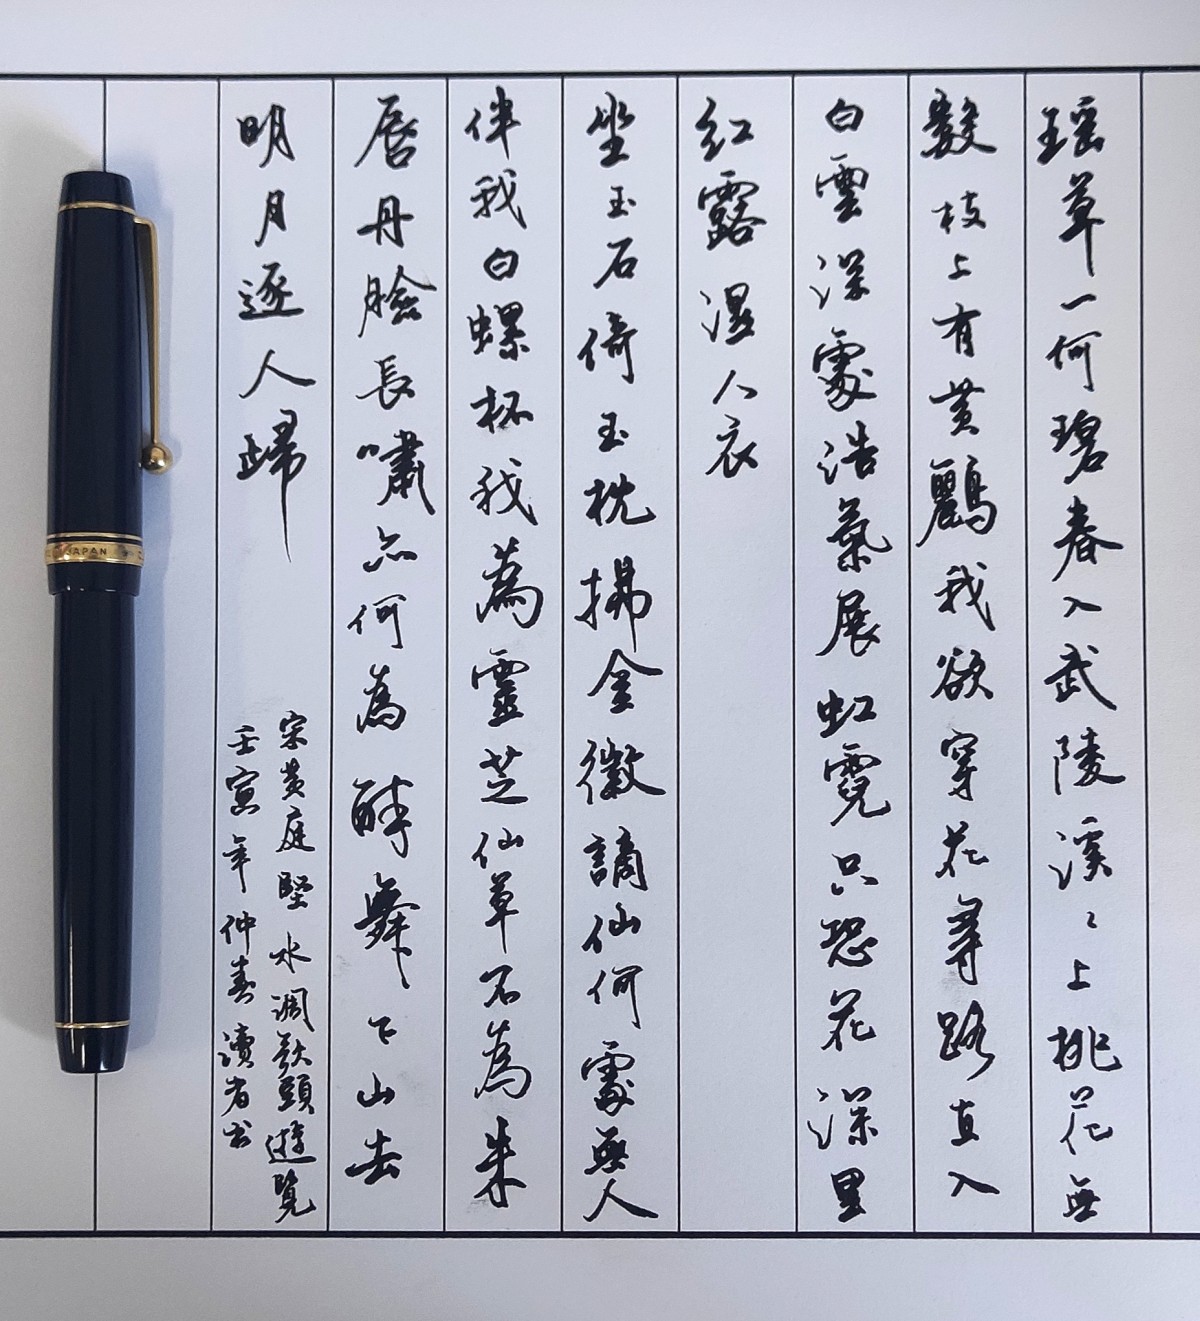 瑤草一何碧春入武陵溪〻上桃花無
數枝上有黃鸝我欲穿花尋路直入
白雲深處浩氣展虹霓只恐花深里
紅露濕人衣
坐玉石倚玉枕拂金徽謫仙何處無人
伴我白螺杯我為靈芝仙草不為朱
唇丹臉長嘯亦何為醉舞下山去
明月逐人歸
宋黃庭堅水調歌頭遊覽
壬寅年仲春瀆省书
JAPAN